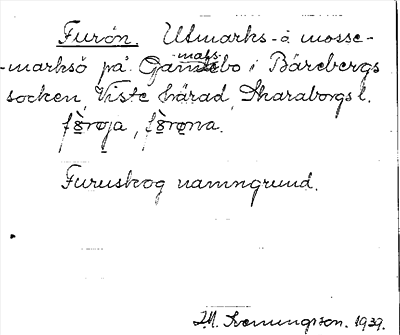 Furön. Utmarks- å mosse-
-marksö på Gammalsbo i Bärebergs
socken, Viste härad, Skaraborgs l.
Furuskog namngrund.
J.M. Svenungson. 1939.